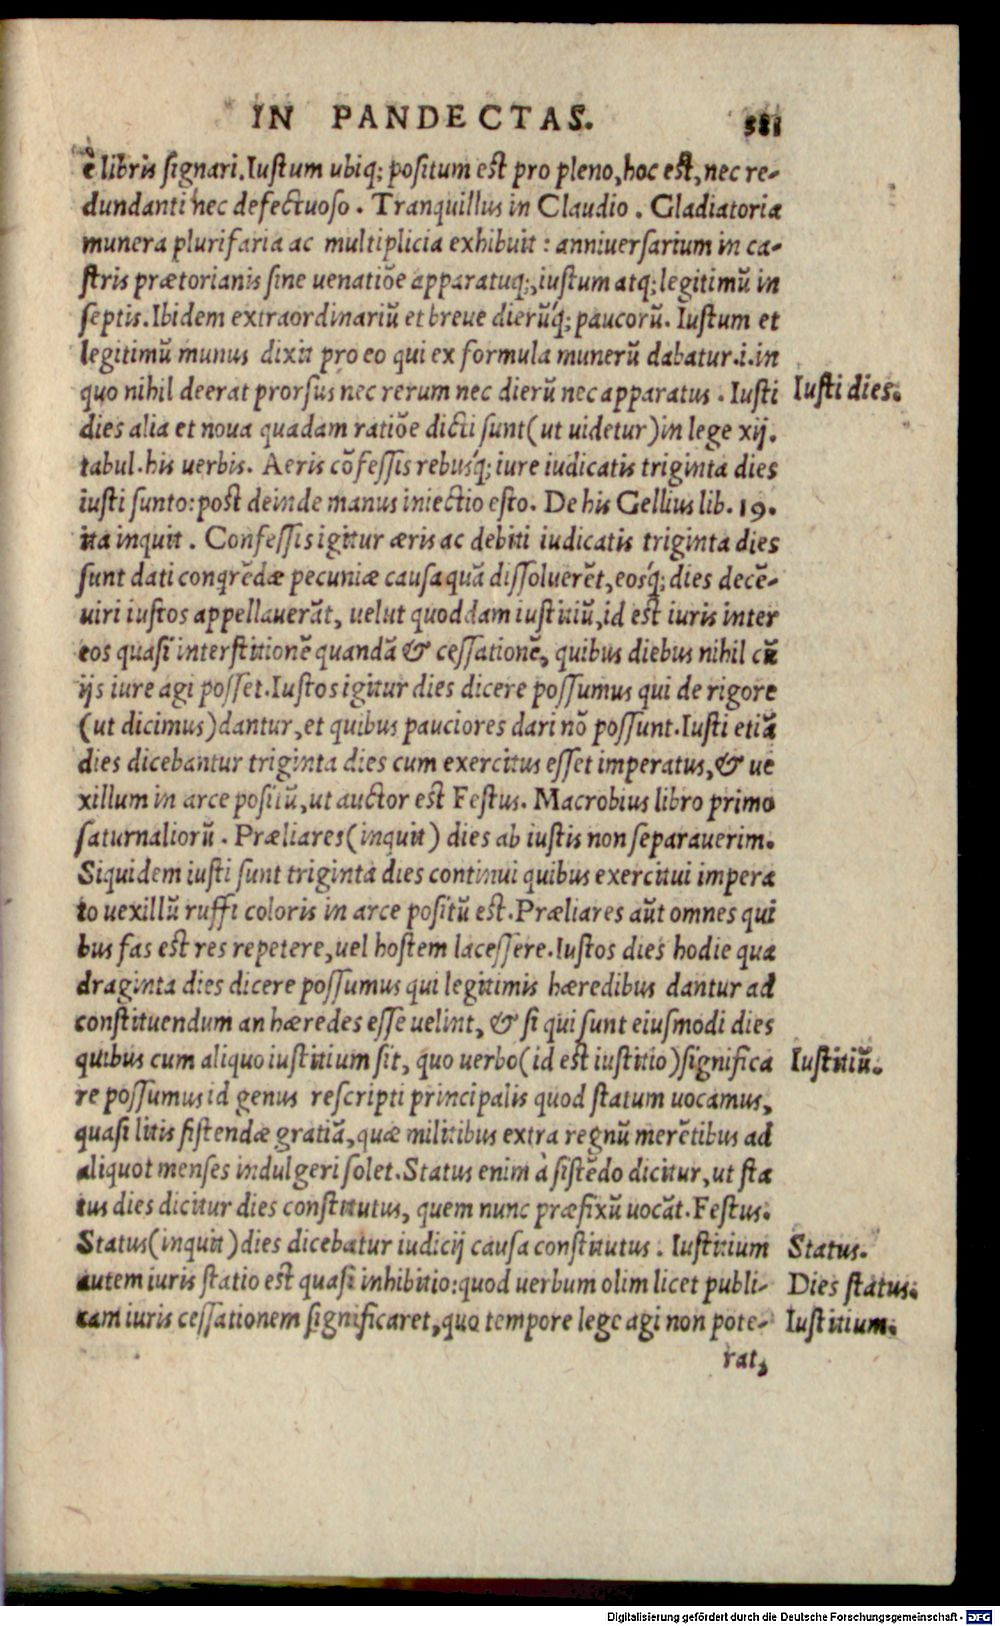 IN PANDECTAS. 581
è libris signari. Iustum ubiq; positum est pro pleno, hoc est, nec re-
dundanti nec defectuoso. Tranquillus in Claudio. Gladiatoria
munera plurifaria ac multiplicia exhibuit: anniuersarium in ca-
stris prætorianis sine uenatiōe apparatuq;, iustum atq; legitimū in
septis. Ibidem extraordinariū et breue dierūq́; paucorū. Iustum et
legitimū munus dixit pro eo qui ex formula munerū dabatur.i.in
quo nihil deerat prorsus nec rerum nec dierū nec apparatus. Iusti
Iusti dies.
dies alia et noua quadam ratiōe dicti sunt (ut uidetur) in lege xij.
tabul. his uerbis. Aeris cōfessis rebusq́; iure iudicatis triginta dies
iusti sunto: post deinde manus iniectio esto. De his Gellius lib. 19.
ita inquit. Confessis igitur æris ac debiti iudicatis triginta dies
sunt dati conqrēdæ pecuniæ causa quā dissoluerēt, eosq́; dies decē-
uiri iustos appellauerāt, uelut quoddam iustitiū, id est iuris inter
eos quasi interstitionē quandā & cessationē, quibus diebus nihil cū
ijs iure agi posset. Iustos igitur dies dicere possumus qui de rigore
(ut dicimus) dantur, et quibus pauciores dari nō possunt. Iusti etiā
dies dicebantur triginta dies cum exercitus esset imperatus, & ue
xillum in arce positū, ut auctor est Festus. Macrobius libro primo
saturnaliorū. Præliares (inquit) dies ab iustis non separauerim.
Siquidem iusti sunt triginta dies continui quibus exercitui impera
to uexillū ruffi coloris in arce positū est. Præliares aūt omnes qui
bus fas est res repetere, uel hostem lacessere. Iustos dies hodie qua
draginta dies dicere possumus qui legitimis hæredibus dantur ad
constituendum an hæredes esse uelint, & si qui sunt eiusmodi dies
quibus cum aliquo iustitium sit, quo uerbo (id est iustitio) significa
Iustitiū.
re possumus id genus rescripti principalis quod statum uocamus,
quasi litis sistendæ gratiā, quæ militibus extra regnū merētibus ad
aliquot menses indulgeri solet. Status enim à sistēdo dicitur, ut sta
tus dies dicitur dies constitutus, quem nunc præfixū uocāt. Festus.
Status (inquit) dies dicebatur iudicij causa constitutus. Iustitium
Status.
autem iuris statio est quasi inhibitio: quod uerbum olim licet publi-
Dies status.
cam iuris cessationem significaret, quo tempore lege agi non pote-
Iustitium.
rat,
Digitalisierung gefördert durch die Deutsche Forschungsgemeinschaft - DFG